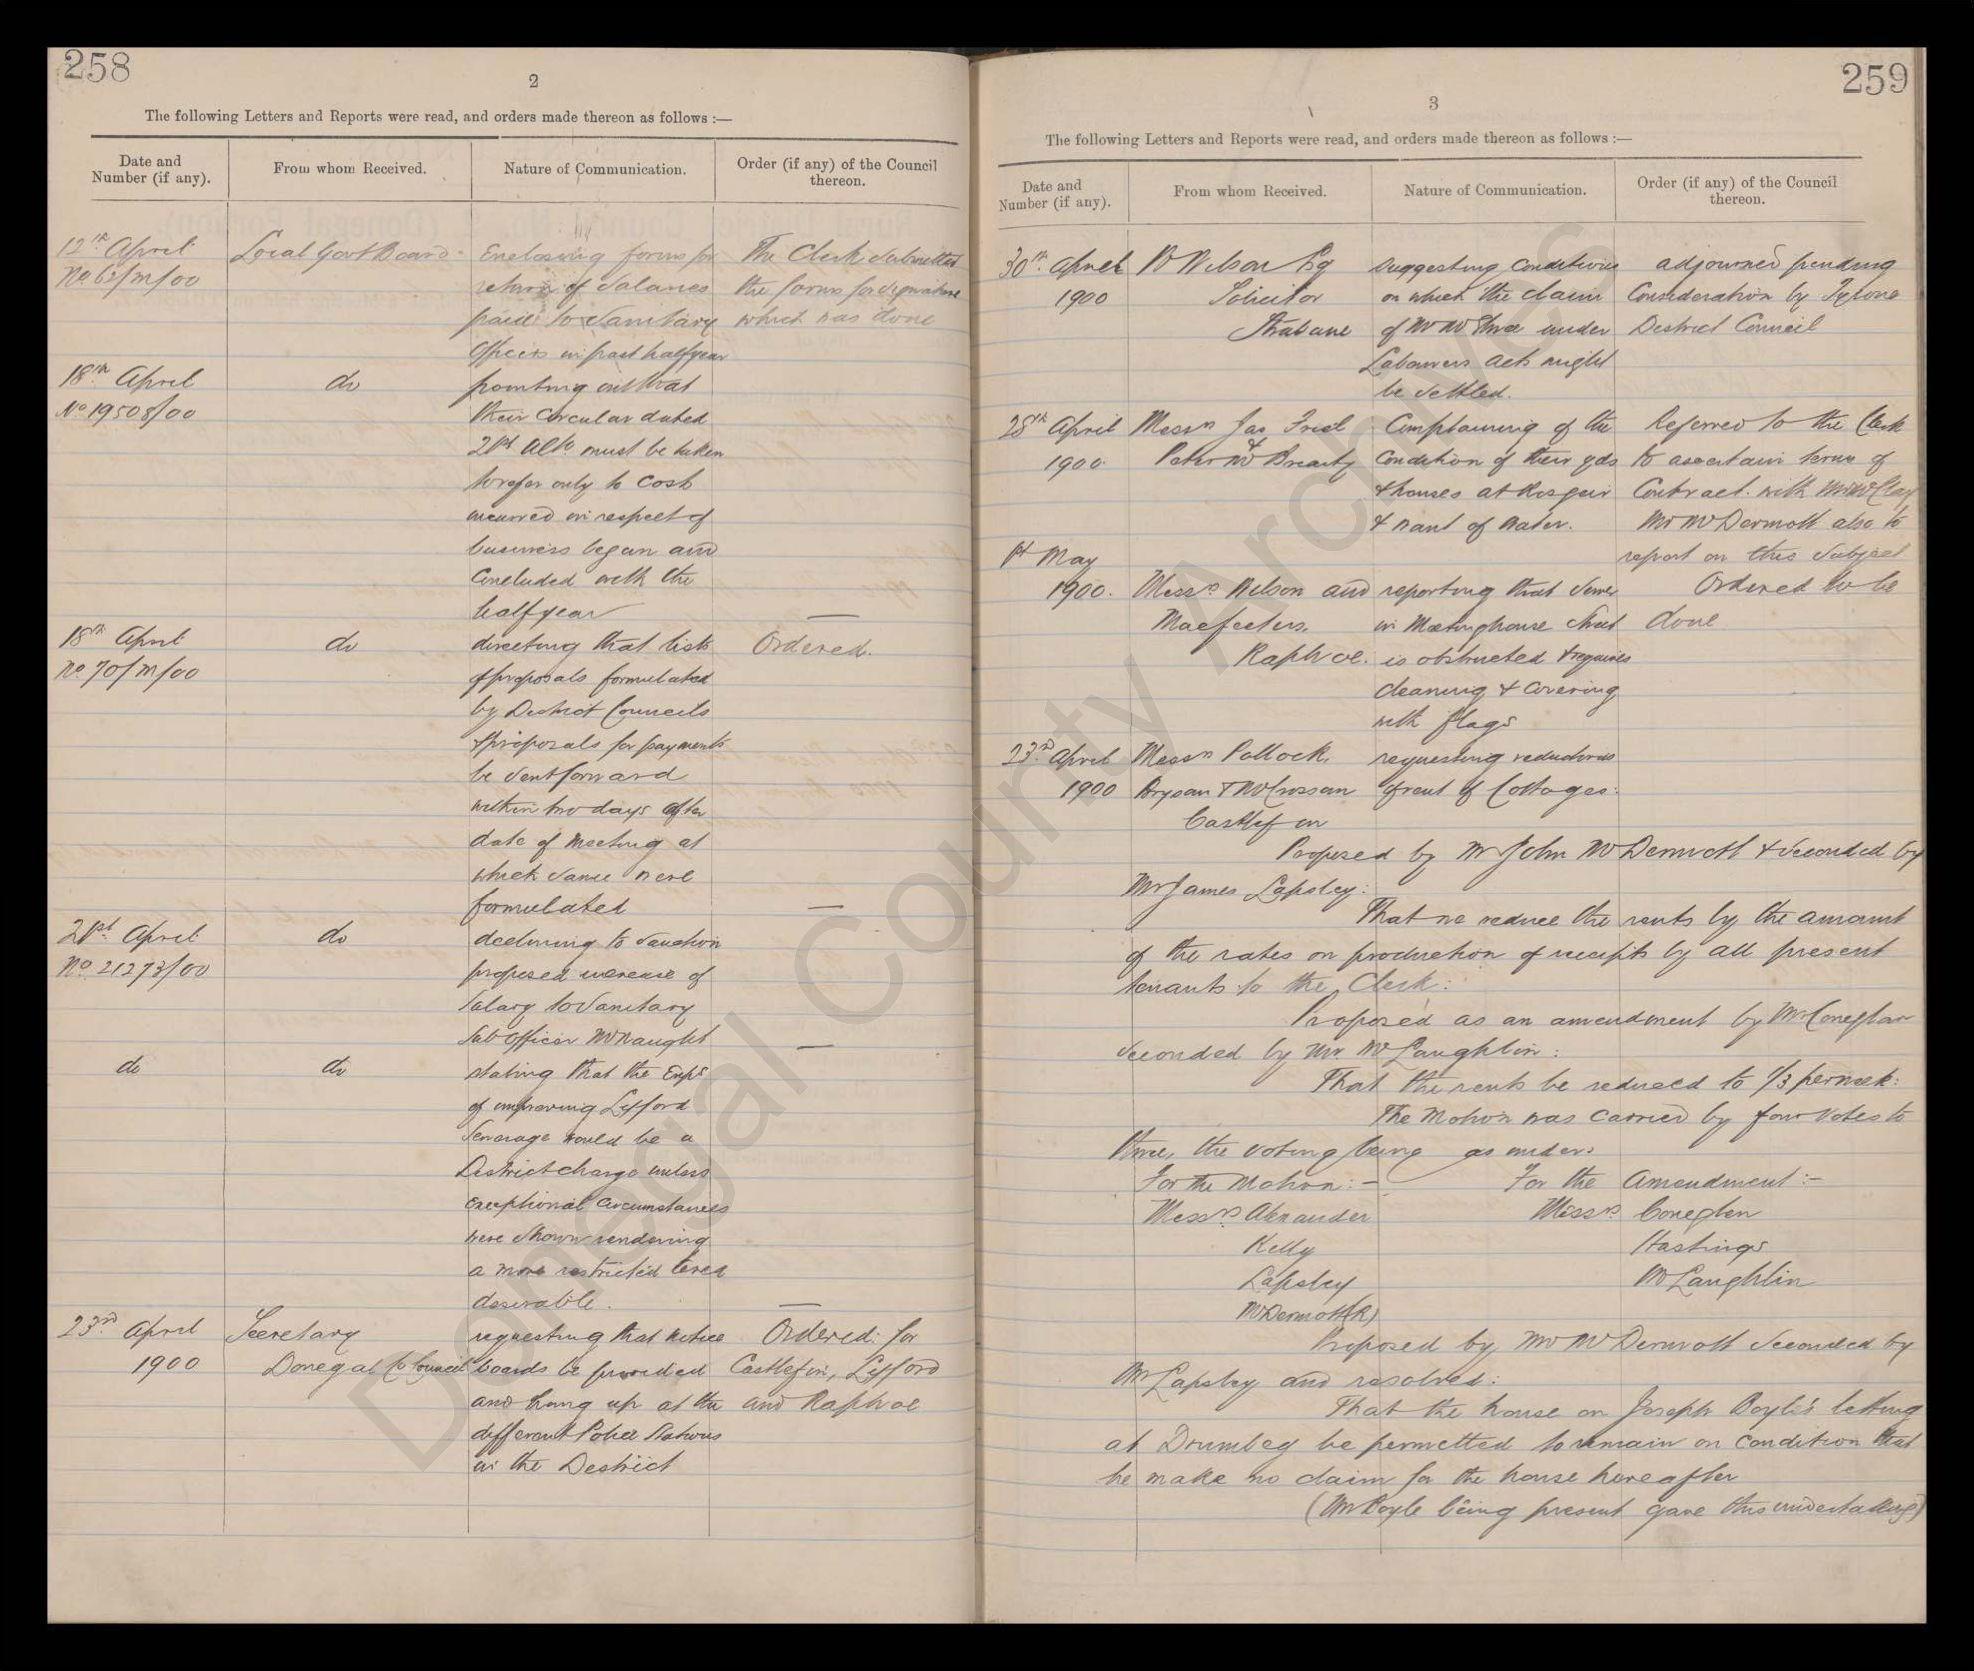 258
2
The following Letters and Reports were read, and orders made thereon as follows :—
Date and Number (if any). From whom Received. Nature of Communication. Order (if any) of the Council thereon.
12th April Local Govt Board Enclosing forms for The Clerk submitted
No 63/M/00 return of Salaries the forms for signature
paid to Sanitary which was done
Officers in past halfyear
18th April do pointing out that
No 19508/00 their Circular dated
21st Ulto must be taken
to refer only to Cost
incurred in respect of
business began and
Concluded with the
halfyear —
18th April do directing that lists Ordered.
No 70/M/00 of proposals formulated
by District Councils
& proposals for payments
be sent forward
within two days after
date of Meeting at
which same were
formulated —
21st April do declining to sanction
No 21273/00 proposed increase of
Salary to Sanitary
Sub Officer McNaught —
do do stating that the Exps
of improving Lifford
Sewerage would be a
District charge unless
exceptional circumstances
were shown rendering
a more restricted area
desirable. —
23rd April Secretary requesting that notice Ordered: for
1900 Donegal Co Council boards be provided Castlefin, Lifford
and hung up at the and Raphoe
different Police Stations
in the District
259
3
The following Letters and Reports were read, and orders made thereon as follows :—
Date and Number (if any). From whom Received. Nature of Communication. Order (if any) of the Council thereon.
30th April W Wilson Esq Suggesting Conditions adjourned pending
1900 Solicitor on which the claim Consideration by Tyrone
Strabane of under District Council
Labourers acts might
be settled.
28th April Messrs Jas Friel Complaining of the Referred to the Clerk
1900. & Peter McBrearty Condition of their yds to ascertain terms of
& houses at Rosgeir Contract with Mr McClay
& want of water. Mr McDermott also to
report on this subject
1st May
1900. Messrs Wilson and reporting that sewer Ordered to be
Macfeeters. in Meetinghouse Street done
Raphoe. is obstructed & requires
cleaning & covering
with flags
23rd April Messrs Pollock, requesting reductions
1900 Bryson & McCrossan of rent of Cottages.
Castlefin
Proposed by Mr John McDermott & seconded by
Mr James Lapsley:
That we reduce the rents by the amount
of the rates on production of receipts by all present
tenants to the Clerk:
Proposed as an amendment by Mr Coneglan
Seconded by Mr McLaughlin:
That the rents be reduced to 1/3 per week:
The Motion was Carried by four votes to
three, the voting being as under:
For the Motion:- For the Amendment:-
Messrs Alexander Messrs Coneglen
Kelly Hastings
Lapsley McLaughlin
McDermott(R)
Proposed by Mr McDermott Seconded by
Mr Lapsley and resolved:
That the house on Joseph Boyle's letting
at Drumbeg be permitted to remain on condition that
he make no claim for the house hereafter
(Mr Boyle being present gave this undertaking)
Donegal County Archives